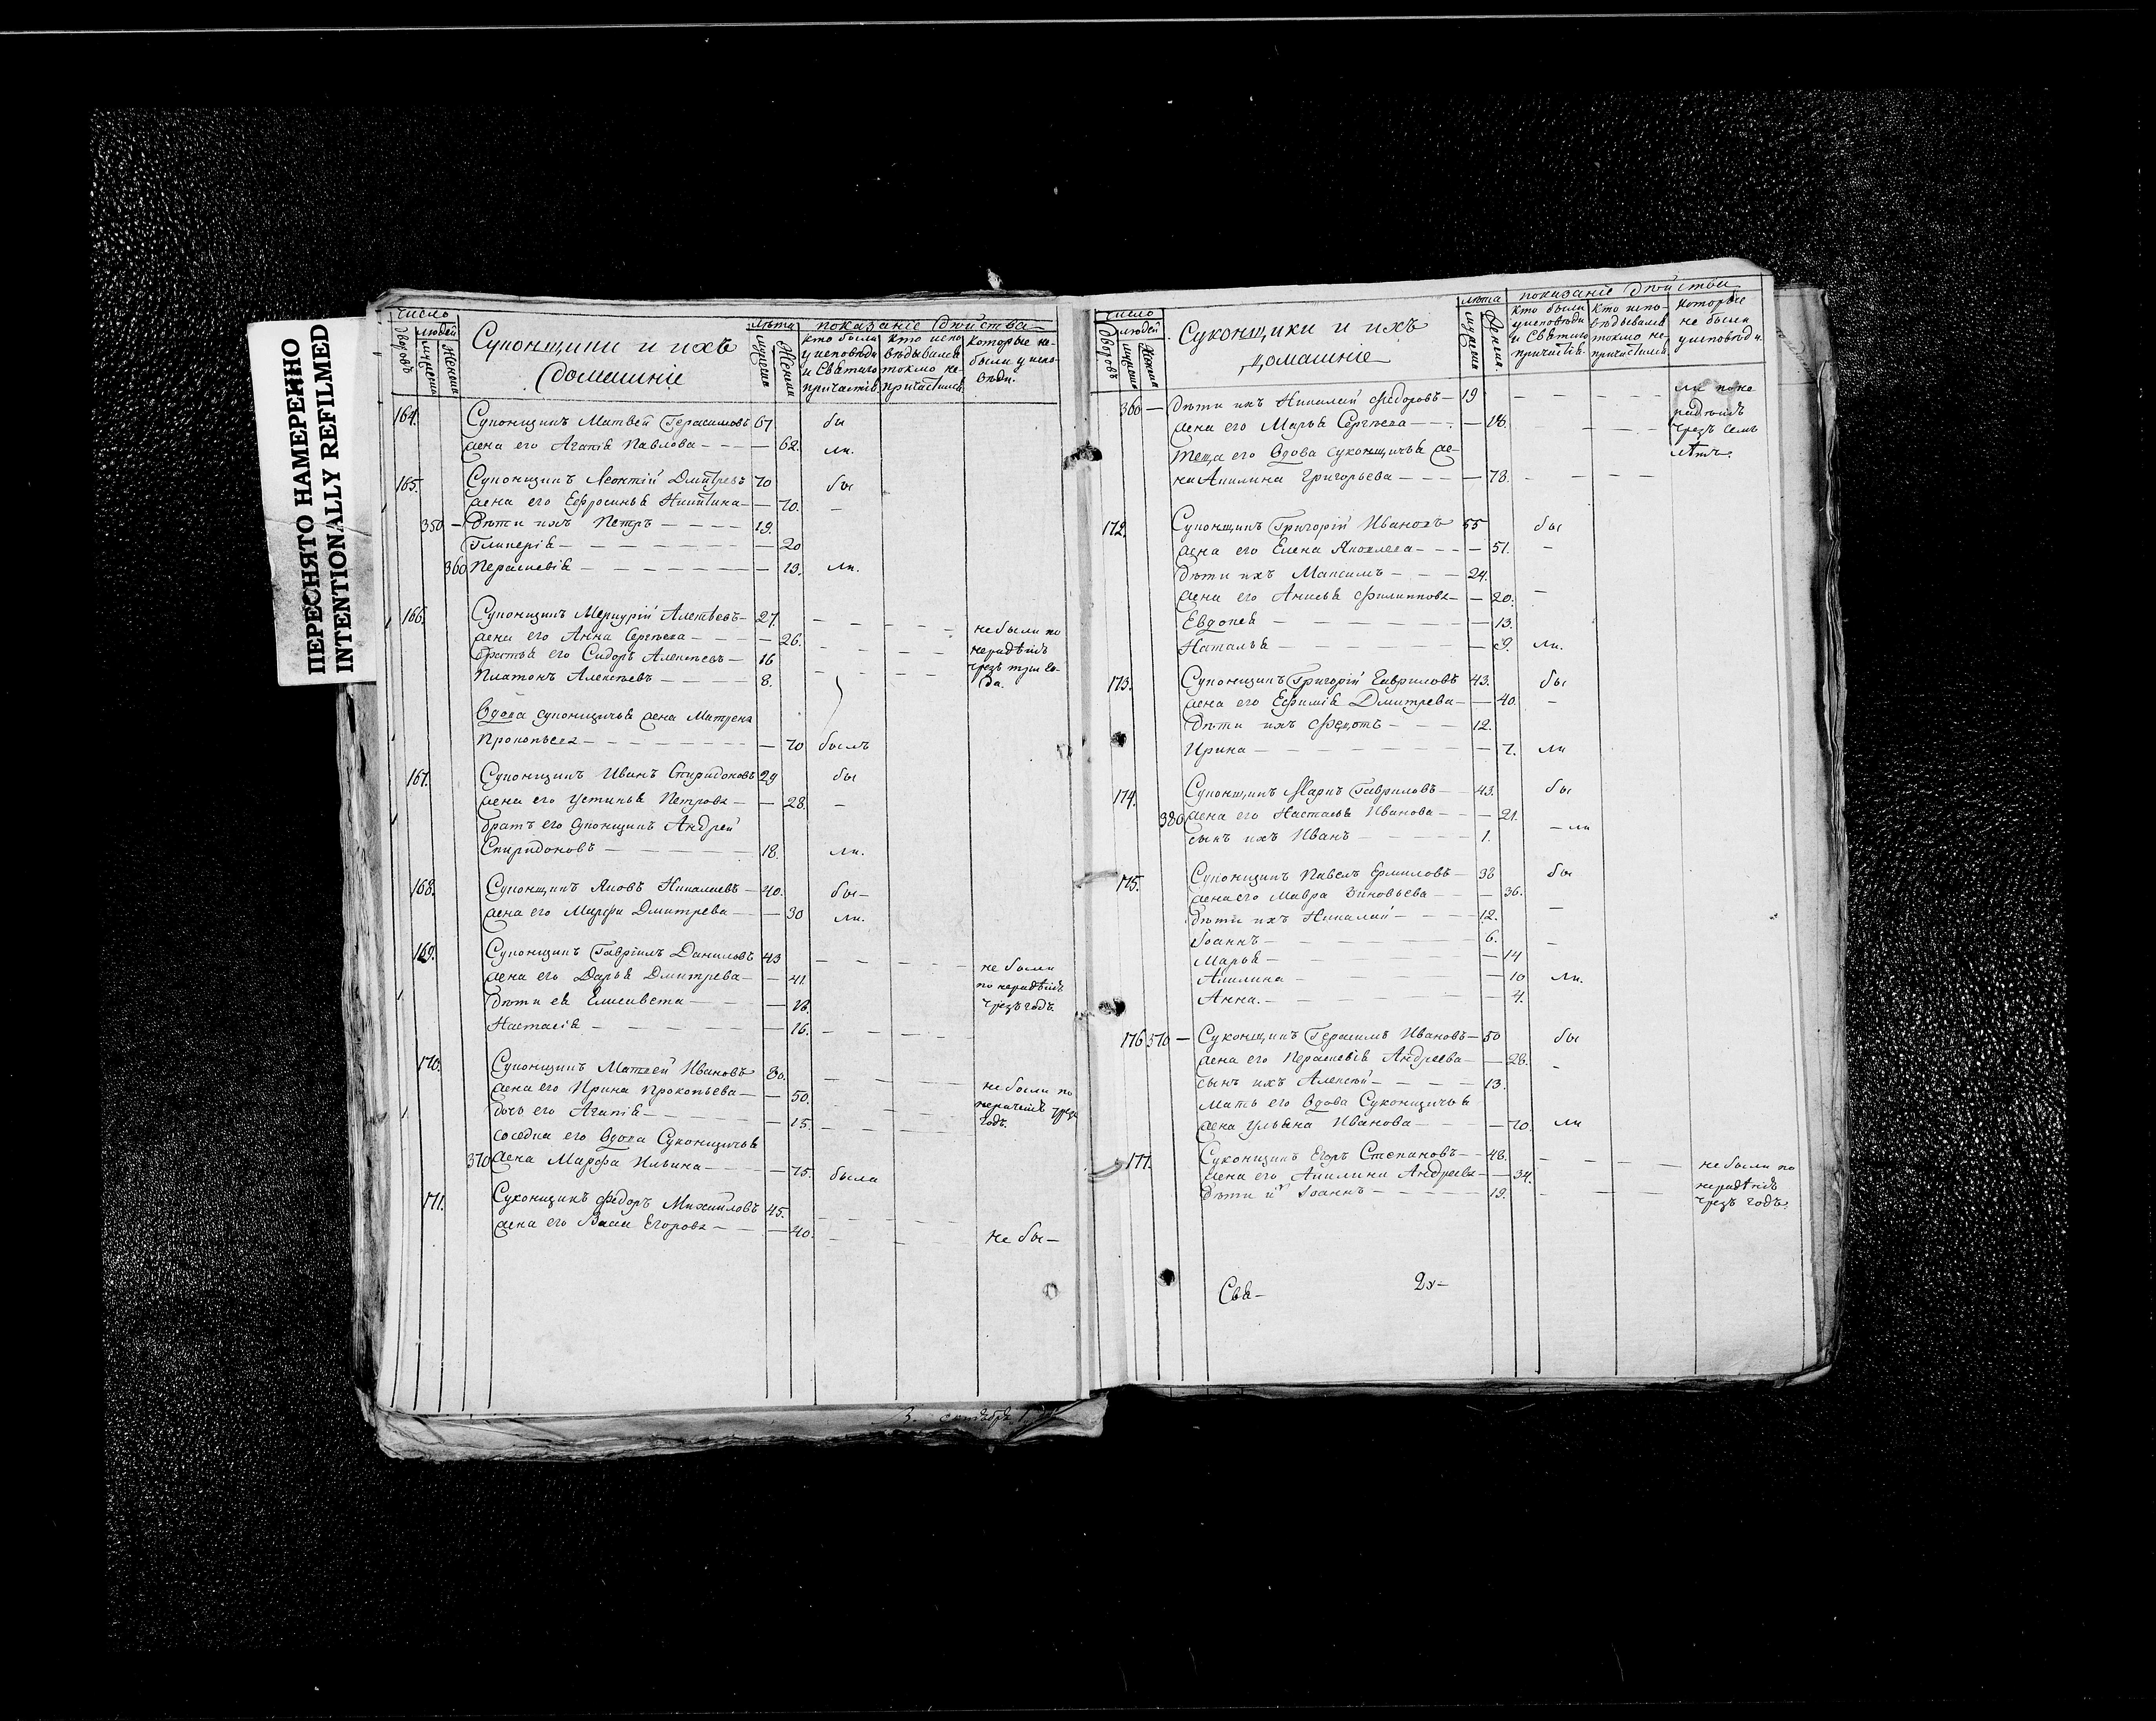 ПЕРЕСНЯТО НАМЕРЕННО
INTENTIONALLY REFILMED
число
дворовъ
людей
мужеска
женска
Суконщики и ихъ
домашніе
лѣта
мужеска
женска
показаніе дѣйства
кто были
у исповѣди
и Святаго
причастія.
кто испо
вѣдывался
токмо не
причастился
которые не
были у испо
вѣди.
164. Суконщикъ Матвей Герасимовъ 67 бы
жена его Агапія Павлова — 62. ли.
165. Суконщикъ Леонтій Дмитревъ 70 бы
жена его Ефросинья Никитина — 70. —
350 — дѣти ихъ Петръ — 19.
Гликерія — 20
360 Пераскевія — 13. ли.
166. Суконщикъ Меркурій Алеѣевъ — 27. не были по
жена его Анна Сергѣева — 26. нерадѣнію
братья его Сидоръ Алексѣевъ — 16 чрезъ три го-
Платонъ Алексѣевъ — 8. да.
Вдова суконщичья жена Матрена
Прокопьева — 70 былъ
167. Суконщикъ Иванъ Спиридоновъ 29 бы
жена его Устинья Петрова — 28. —
братъ его суконщикъ Андрей
Спиридоновъ — 18. ли.
168. Суконщикъ Яковъ Николаевъ — 40. бы —
жена его Марфа Дмитрева — 30 ли.
169. Суконщикъ Гавріилъ Даниловъ 43 не были
жена его Дарья Дмитрева — 41. по нерадѣнію
дѣти ея Елисавета — 18. чрезъ годъ.
Настасія — 16.
170. Суконщикъ Матвей Ивановъ 80. не были по
жена его Ирина Прокопьева — 50. нерачению чрезъ
дочь его Агапія — 15. годъ.
соседка его вдова Суконщичья
370 жена Марфа Ильина — 75. была
171. Суконщикъ Федоръ Михайловъ 45.
жена его Васса Егорова — 40. не бы —
число
дворовъ
людей
мужеска
женска
Суконщики и ихъ
домашніе
лѣта
мужеска
женска
показаніе дѣйства
кто были
у исповѣди
и Святаго
причастія.
кто испо-
вѣдывался
токмо не
причастился
которые
не были
у исповѣди.
360 — дѣти ихъ Николай Федоровъ — 19 ли по не
жена его Марья Сергѣева — 18. радѣнію
чрезъ семь
Теща его вдова суконщичья же- лѣтъ.
на Акилина Григорьева — 78.
172. Суконщикъ Григорій Ивановъ 55 бы
жена его Елена Яковлева — 51. —
дѣти ихъ Максимъ — 24.
жена его Анисья Филиппова — 20. —
Евдокея — 13.
Наталья — 9. ли.
173. Суконщикъ Григорій Гавриловъ 43. бы
жена его Ефимія Дмитрева — 40. —
дѣти ихъ Федотъ — 12.
Ирина — 7. ли
174. Суконщикъ Маркъ Гавриловъ — 43. бы
380 жена его Настасья Иванова — 21.
сынъ ихъ Иванъ — 1. — ли
175. Суконщикъ Павелъ Ермиловъ — 38 бы
жена его Мавра Зиновьева — 36.
дѣти ихъ Николай — 12. —
Іоаннъ — 6. —
Марья — 14
Акилина — 10 ли.
Анна. — 4.
176 370 — Суконщикъ Герасимъ Ивановъ — 50 бы
жена его Пераскевія Андреева — 28.
сынъ ихъ Алексѣй — 13. —
мать его вдова Суконщичья
жена Ульяна Иванова — 70. ли
177. Суконщикъ Егоръ Степановъ — 48. не были по
жена его Акилина Андреева — 34. нерадѣнію
дѣти и Іоаннъ — 19. чрезъ годъ.